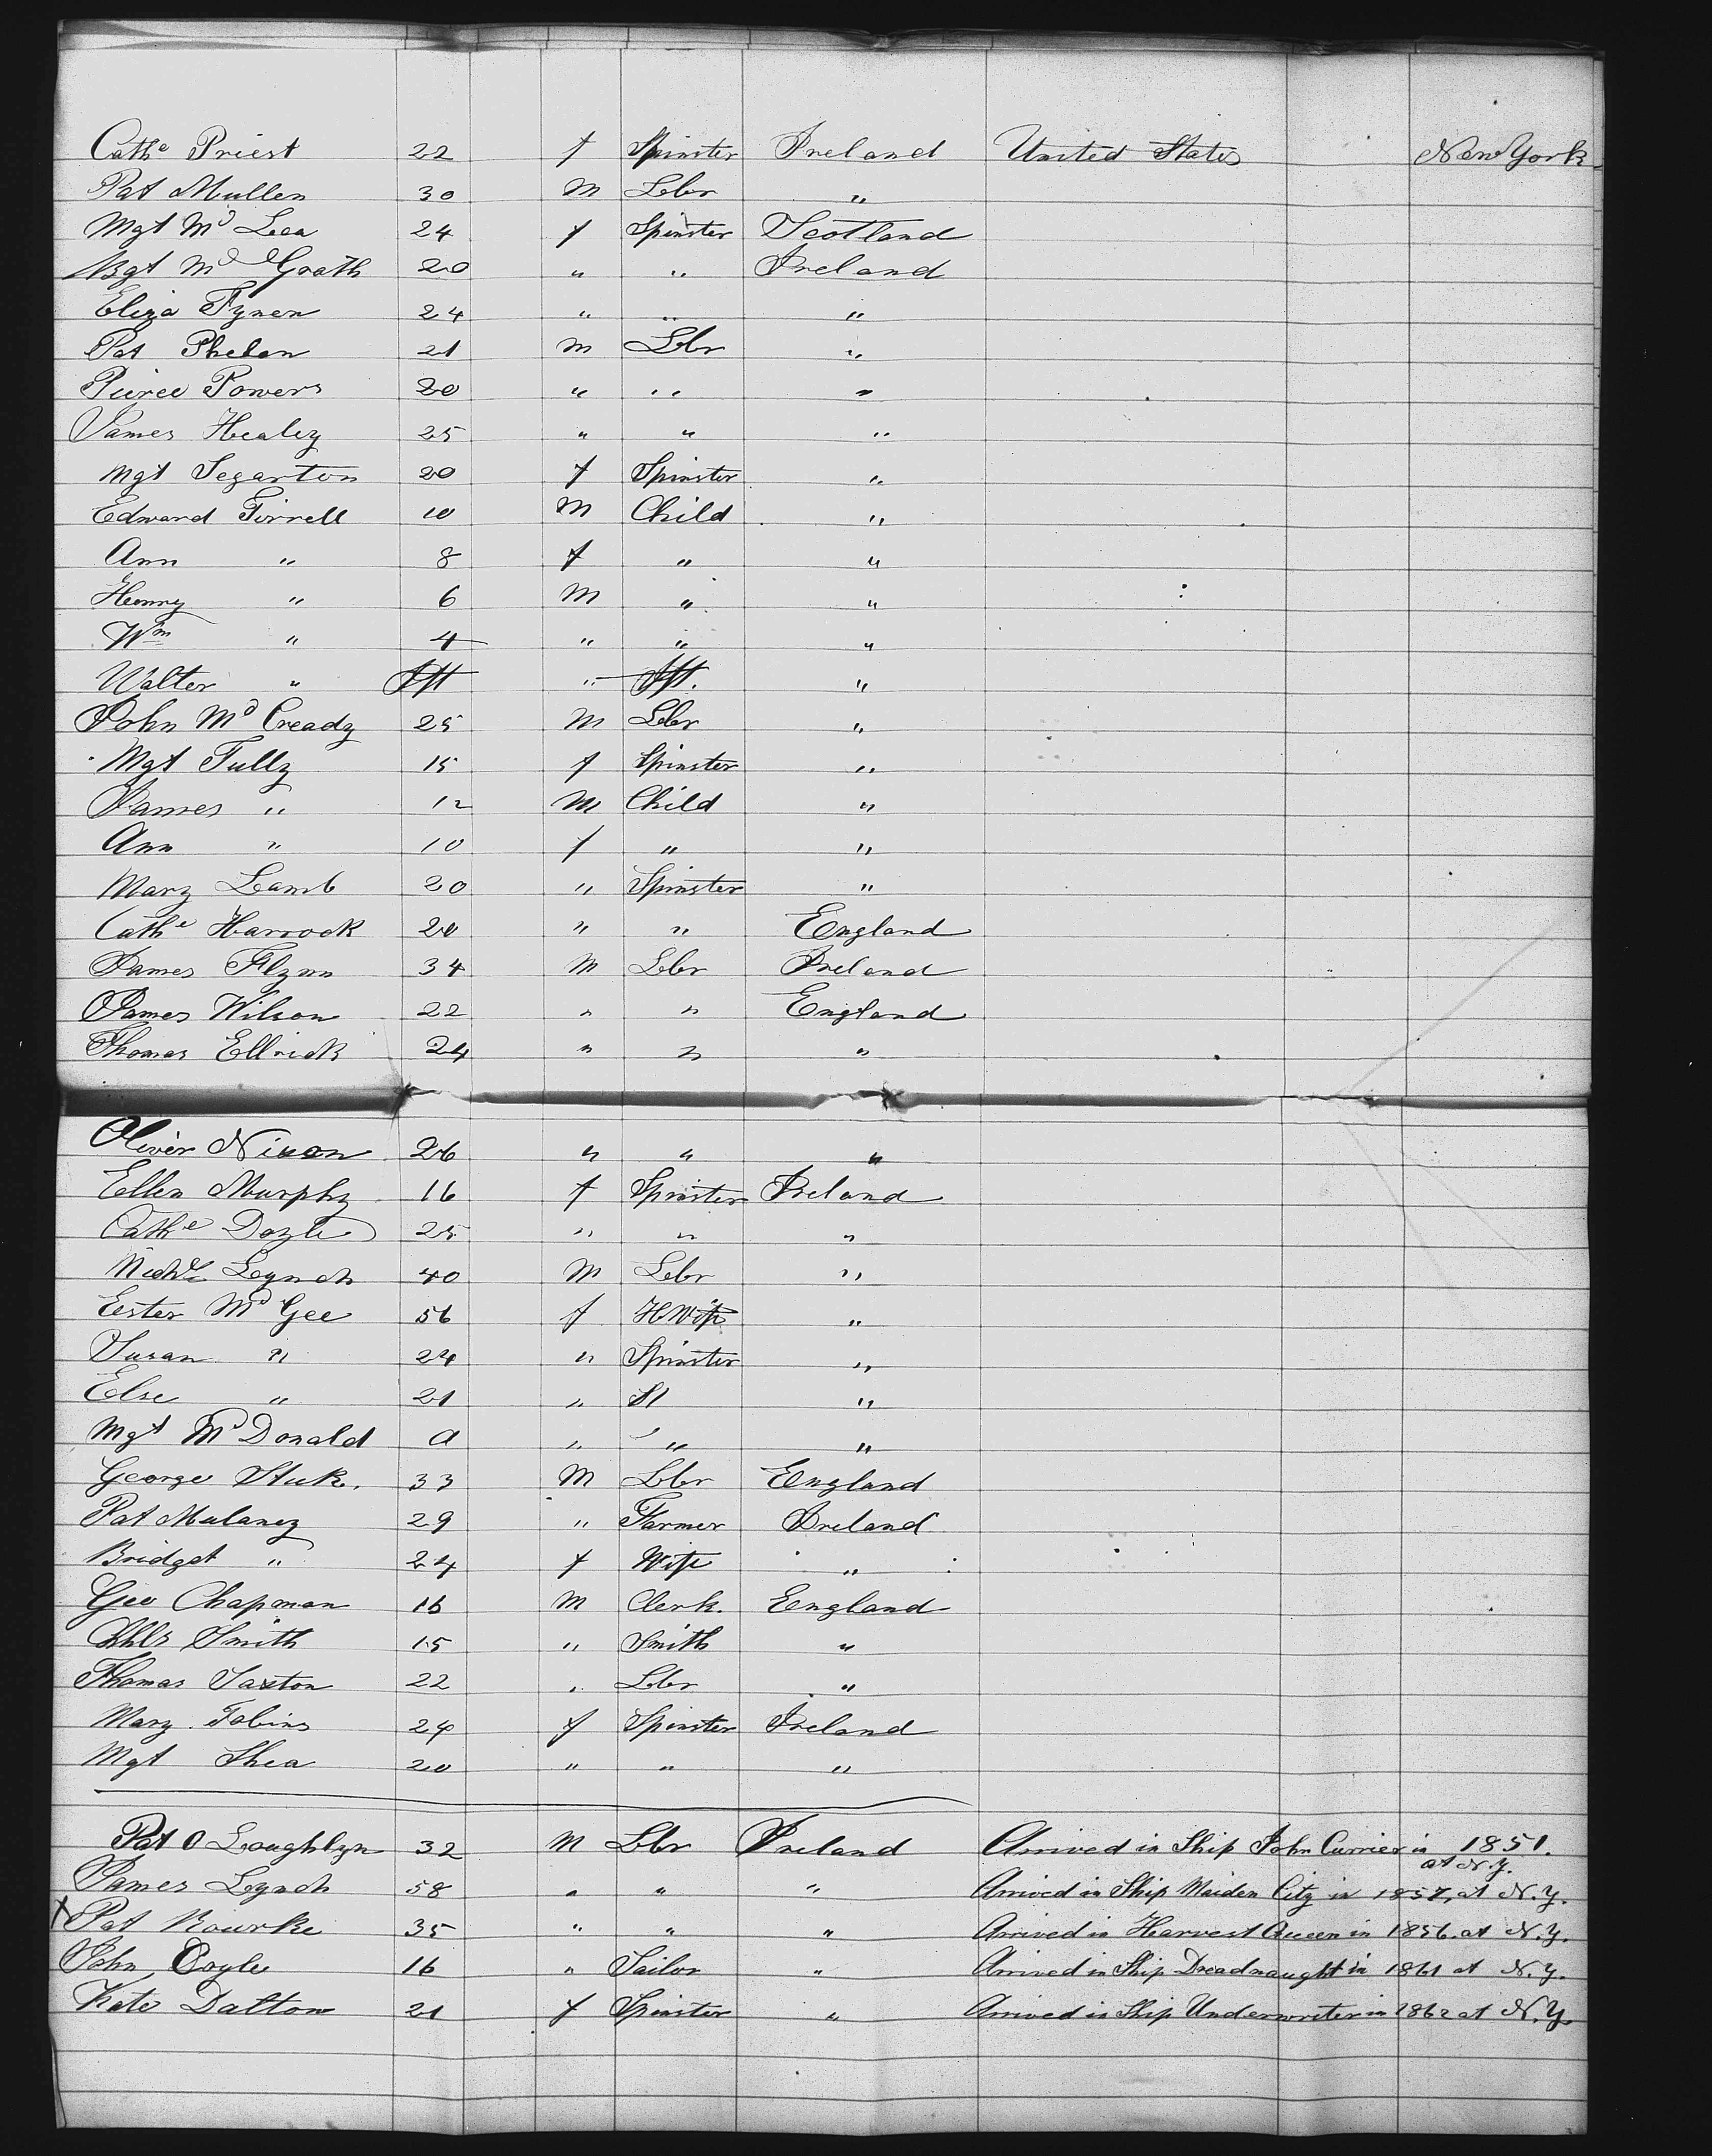 Cathe Priest 22 f Spinster Ireland United States New York
Pat Mullen 30 M Lbr "
Mgt Mc Lea 24 f Spinster Scotland
Bgt Mc Grath 20 " " Ireland
Eliza Tynen 24 " " "
Pat Phelan 21 M Lbr "
Pierce Powers 20 " " "
James Healey 25 " " "
Mgt Segarton 20 f Spinster "
Edward Tirrell 10 M Child "
Ann " 8 f " "
Henry " 6 M " "
Wm " 4 " " "
Walter " Ift " Ift. "
John Mc Cready 25 M Lbr "
Mgt Tully 15 f Spinster "
James " 12 M Child "
Ann " 10 f " "
Mary Lamb 20 " Spinster "
Cathe Harrock 20 " " England
James Flynn 34 M Lbr Ireland
James Wilson 22 " " England
Thomas Ellrick 24 " " "
Oliver Nixon 26 " " "
Ellen Murphy 16 f Spinster Ireland
Cathe Doyle 25 " " "
Michl Leynch 40 M Lbr "
Eester Mc Gee 56 f HWife "
Susan " 24 " Spinster "
Else " 21 " St "
Mgt Mc Donald a " " "
George Stuk. 33 M Lbr England
Pat Mulaney 29 " Farmer Ireland
Bridget " 24 f Wife "
Geo Chapman 16 M Clerk. England
Chls Smith 15 " Smith "
Thomas Saxton 22 " Lbr "
Mary Tobins 24 f Spinster Ireland
Mgt Shea 20 " " "
Pat O Loughlyn 32 M Lbr Ireland Arrived in Ship John Currier in 1851. at N.Y.
James Leynch 58 " " " Arrived in Ship Maiden City in 1857, at N.Y.
X Pat Rourke 35 " " " Arrived in Harvest Queen in 1856. at N.Y.
John Coyle 16 " Sailor " Arrived in Ship Dreadnaught in 1861 at N.Y.
Kate Dalton 21 f Spinster " Arrived in Ship Underwriter in 1862 at N.Y.